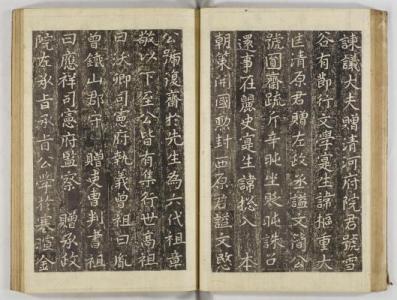 諫議大夫贈清河府院君號雪
谷有節行文學寔生諱樞重大
匡清原君贈左政丞謚文簡公
號圓齋疏斥辛旽坐貶旽誅召
還事在麗史寔生諱捴入 本
朝策開國勳封西原君謚文愍
公號復齋於先生為六代祖章
敬以下至公皆有集行世高祖
曰沃卿司憲府執義曾祖曰胤
曾鐵山郡守 贈吏曹判書祖
曰應祥司憲府監察 贈承政
院左承旨承旨公學於寒暄金